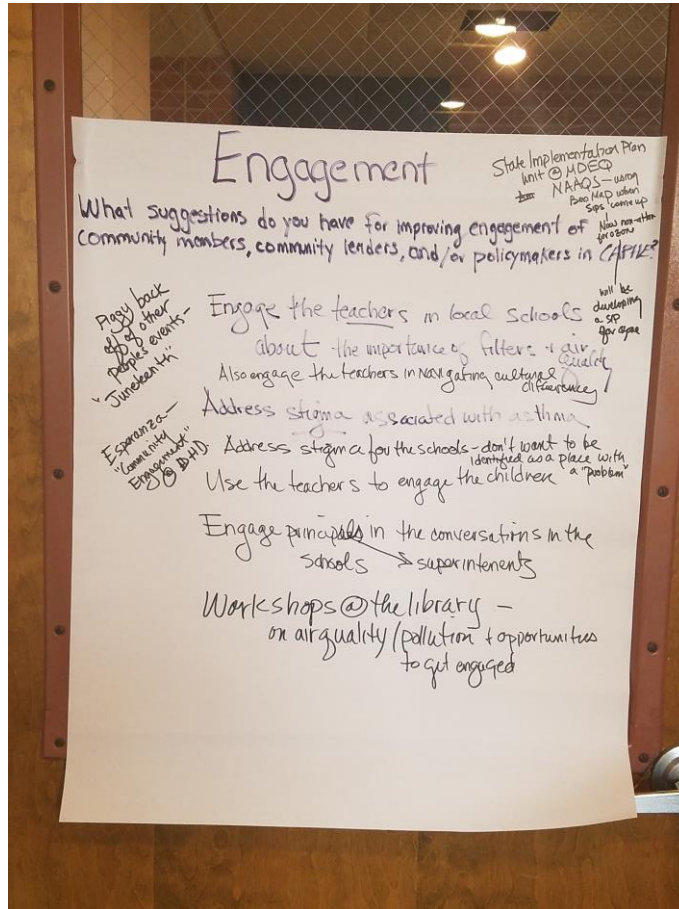 Engagement
State Implementation Plan
unit @ MDEQ
NAAQS - using
BenMap when
SIPs come up
Now non-atten
for ozone
will be
developing
a SIP
for ozone
What suggestions do you have for improving engagement of
community members, community leaders, and/or policymakers in CAPHE?
Piggy back
off of
of other
peoples events -
"Juneteenth"
Esperanza -
"Community
Engagement"
@ DHD.
Engage the teachers in local schools
about the importance of filters + air
quality
Also engage the teachers in navigating cultural
differences
Address stigma associated with asthma
Address stigma for the schools - don't want to be
identified as a place with
a "problem"
Use the teachers to engage the children
Engage principals in the conversations in the
schools superintenents
Workshops @ the library -
on air quality / pollution + opportunities
to get engaged